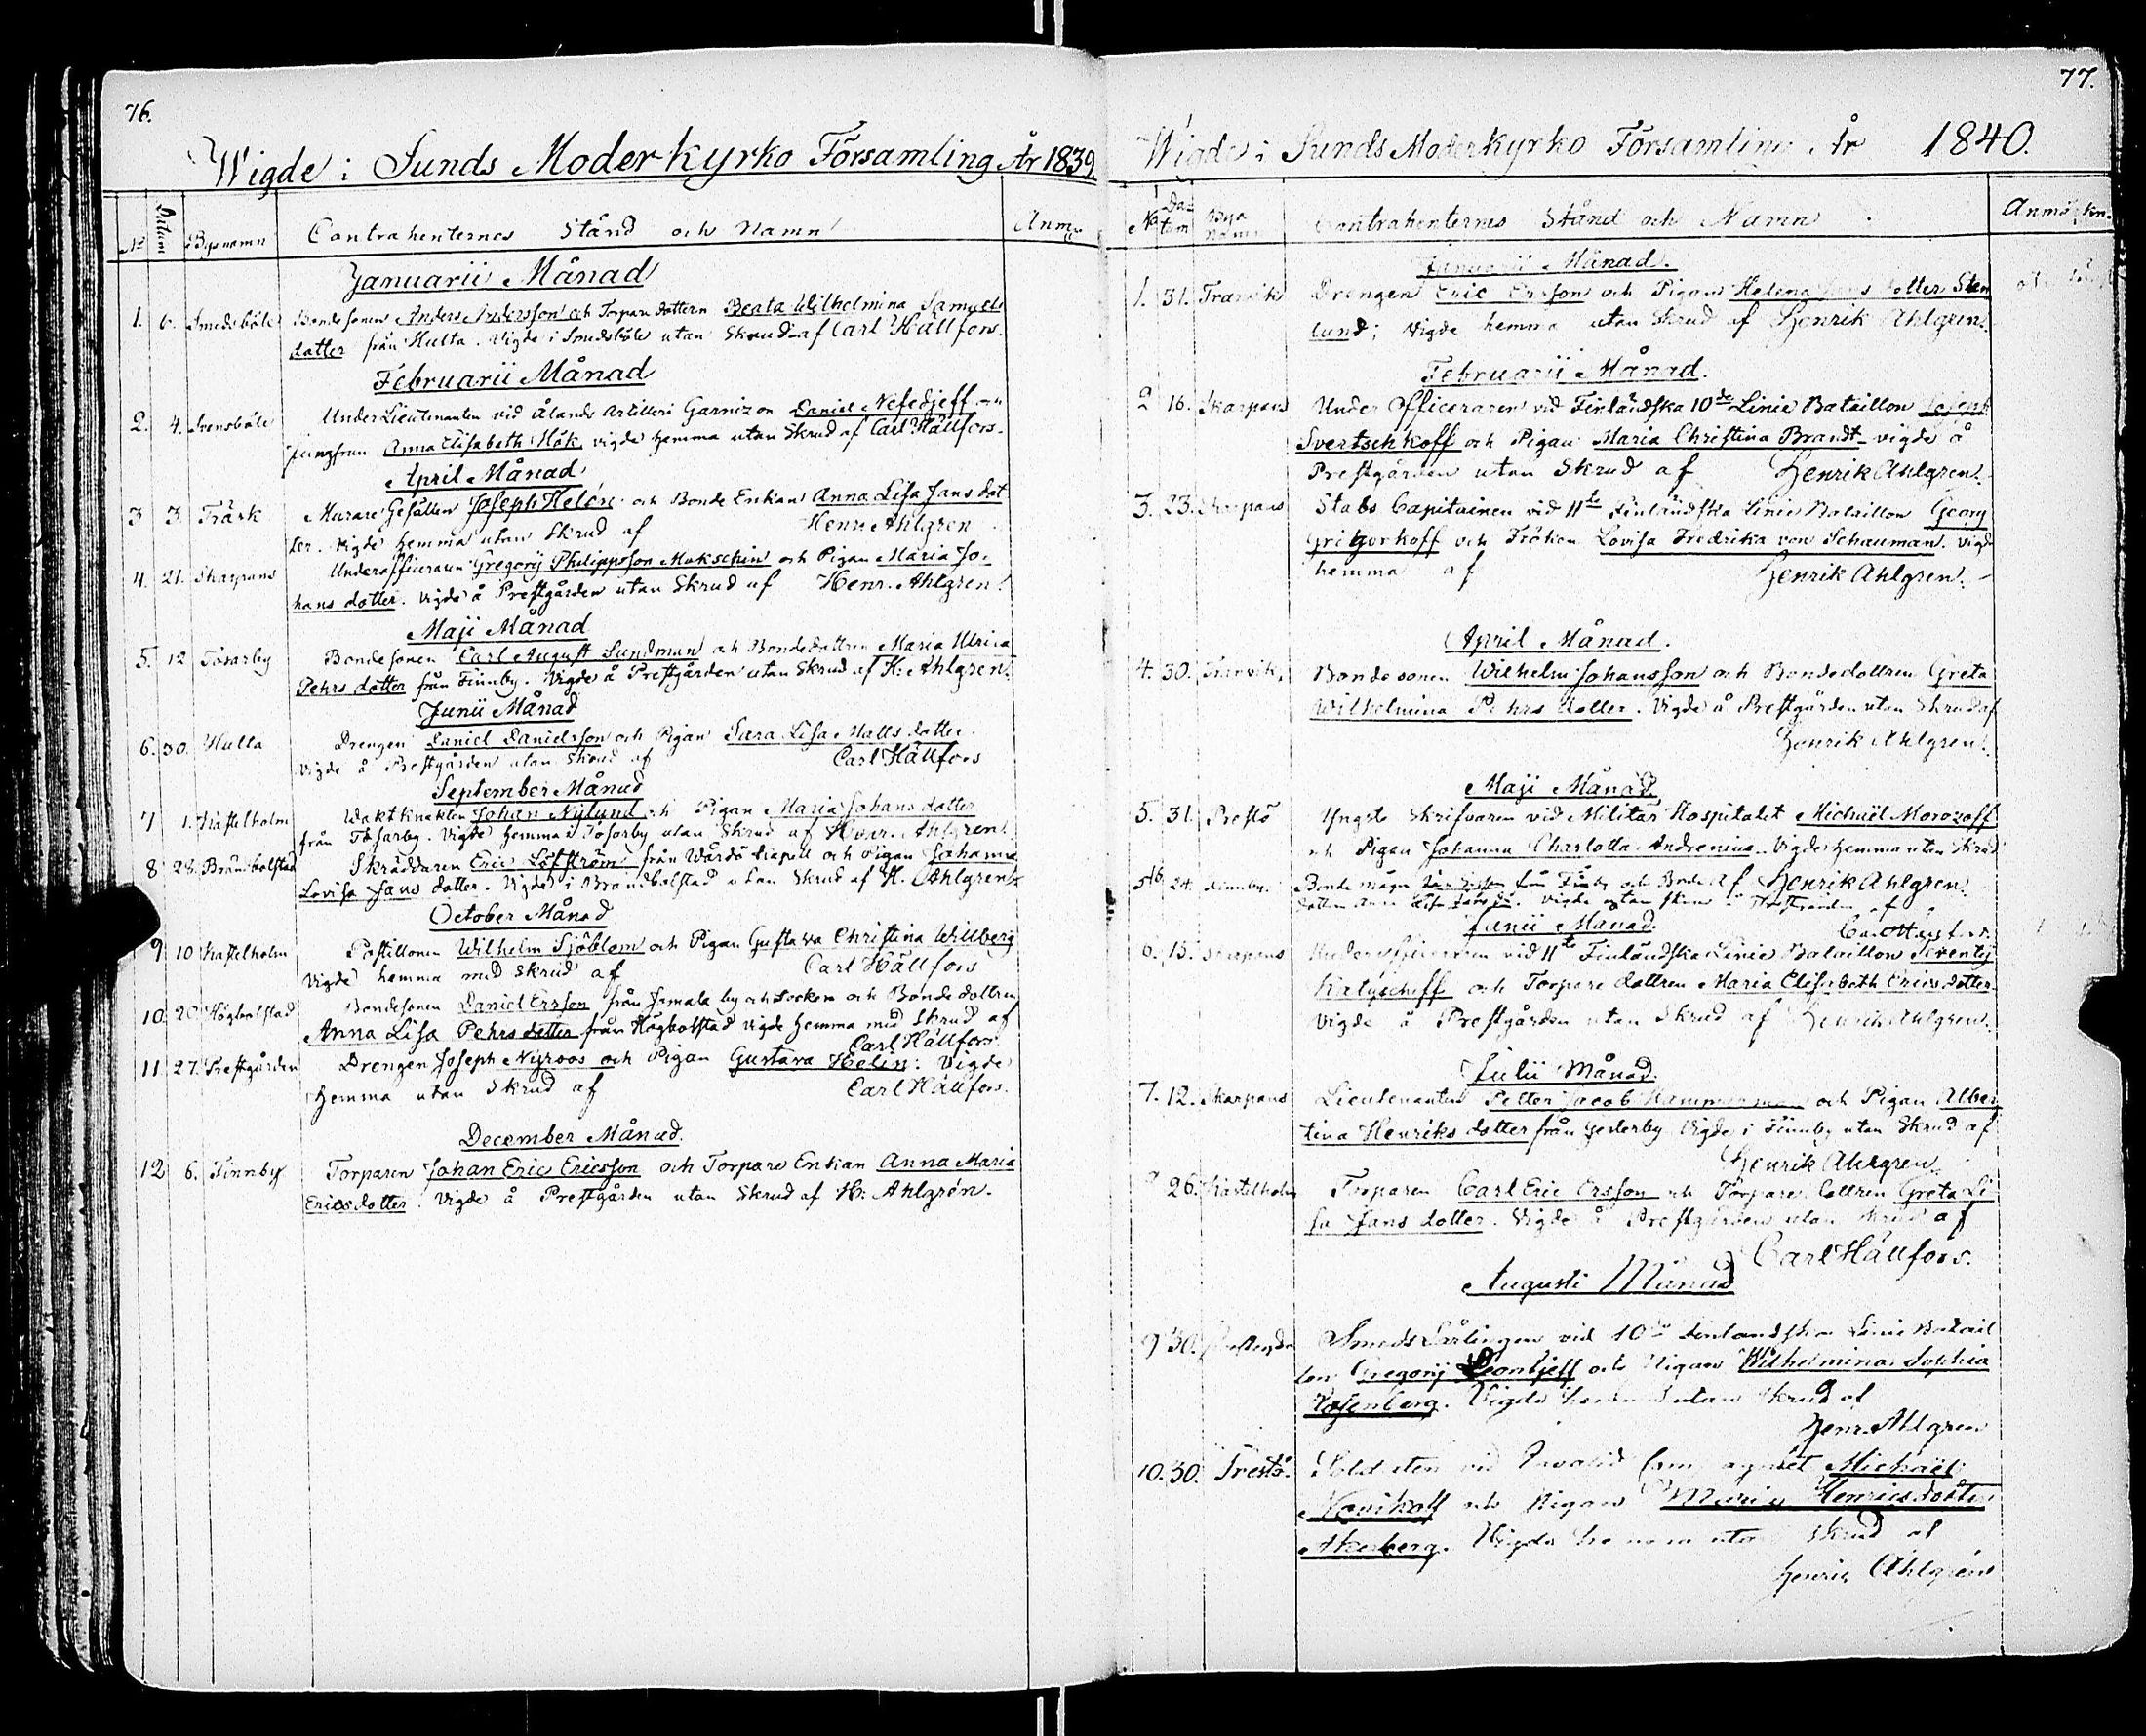 76.
Wigde i Sunds Moderkyrko Församling År 1839.
No Datum Bysnamn Contrahenternes Stånd och Namn Anm
Januarii Månad
1. 6. Smedsböle Bondesonen Anders Andersson och Torpare dottern Beata Wilhelmina Samuels
dotter från Hulta. Vigde i Smedsböle utan Skrud af Carl Hällfors.
Februarii Månad
2. 4. Svensböle UnderLieutenanten vid Ålands Artilleri Garnizon Daniel Nefedjeff och
Jungfrun Anna Elisabeth Hök vigde hemma utan Skrud af Carl Hällfors.
April Månad
3 3. Träsk Murare Gesällen Joseph Helén och Bonde Enkan Anna Lisa Jans dot
ter. Vigde hemma utan Skrud af Henr. Ahlgren
4. 21. Skarpans Underofficeraren Gregorij Philippsson Mukschin och Pigan Maria Jo-
hans dotter. Vigde å Prestgården utan Skrud af Henr. Ahlgren.
Maji Månad
5. 12 Tosarby Bondesonen Carl August Sundman och Bondedottren Maria Ulrica
Pehrs dotter från Finnby. Vigde å Prestgården utan Skrud af H. Ahlgren.
Junii Månad
6. 30. Hulta Drengen Daniel Danielsson och Pigan Sara Lisa Matts dotter.
Vigde å Prestgården utan Skrud af Carl Hällfors
September Månad
7 1. Kastelholm Waktknekten Johan Nylund och Pigan Maria Johans dotter
från Tosarby. Vigde hemma i Tosarby utan Skrud af Henr. Ahlgren.
8 28. Brändbolstad Skräddaren Eric Löfström från Wårdö Capell och Pigan Johanna
Lovisa Jans dotter. Vigde i Brändbolstad utan Skrud af H. Ahlgren.
October Månad
9 10 Kastelholm Postillonen Wilhelm Sjöblom och Pigan Gustava Christina Willberg
Vigde hemma med Skrud af Carl Hällfors
10 20 Högbolstad Bondesonen Daniel Ersson från Jomala by och Socken och Bondedottren
Anna Lisa Pehrs dotter från Högbolstad vigde hemma med Skrud af
Carl Hällfors.
11 27. Prestgården Drengen Joseph Nyroos och Pigan Gustava Helin: Vigde
hemma utan Skrud af Carl Hällfors.
December Månad.
12 6. Finnby Torparen Johan Eric Ericsson och Torpare Enkan Anna Maria
Ericsdotter. Vigde å Prestgården utan Skrud af H. Ahlgrén.
77.
Wigde i Sunds Moderkyrko Församling År 1840.
No Datum Bya Namn Contrahenternes Stånd och Namn Anmärkn.
Januarii Månad.
1. 31. Tranvik Drengen Eric Ersson och Pigan Helena Jans dotter Sten
lund; Vigde hemma utan Skrud af Henrik Ahlgren.
Februarii Månad.
2 16. Skarpans Under Officeraren vid Finländska 10de Linie Bataillon Joseph
Svertschkoff och Pigan Maria Christina Brandt vigde å
Prestgården utan Skrud af Henrik Ahlgren.
3. 23. Skarpans Stabs Capitainen vid 11te Finländska Linie Bataillon Georg
Grigorkoff och Fröken Lovisa Fredrika von Schauman. Vigde
hemma af Henrik Ahlgren.
April Månad.
4. 30. Tranvik, Bondesonen Wilhelm Johansson och Bondedottren Greta
Wilhelmina Pehrs dotter. Vigde å Prestgården utan Skrud af
Henrik Ahlgren.
Maji Månad.
5. 31. Prestö Yngste Skrifvaren vid Militär Hospitalet Michaël Morozoff
och Pigan Johanna Charlotta Andrenius. Vigde hemma utan Skrud
af Henrik Ahlgren.
5b 24. Finnby. Bonde från Finby och Bonde
dottern Anna Lisa Vigde utan Skrud i Prestgården af
Carl Hällfors.
Junii Månad.
6. 15. Skarpans Underofficeraren vid 11te Finländska Linie Bataillon Terentij
Kalyscheff och Torpare dottren Maria Elisabeth Erics dotter.
Vigde å Prestgården utan Skrud af Henrik Ahlgren.
Julii Månad.
7. 12. Skarpans Lieutenanten Petter Jacob och Pigan Alber
tina Henriks dotter från Gesterby Vigde i Finnby utan Skrud af
Henrik Ahlgren.
26. Kastelholm Torparen Carl Eric Ersson och Torpare dottren Greta Li
sa Jans dotter. Vigde å Prestgården utan Skrud af
Carl Hällfors.
Augusti Månad
9 30. SmedsLärlingen vid 10de Finlandska Linie Batail
lon Gregorij Leontjeff och Pigan Wilhelmina Sophia
Rosenberg. Vigde hemma utan skrud af
Henr. Ahlgren
10. 30. Prestö. Soldaten vid Invalid Compagniet Michaël
Novikoff och Pigan Maria Henricsdotter
Akerberg. Vigde hemma utan skrud af
Henric Ahlgrén